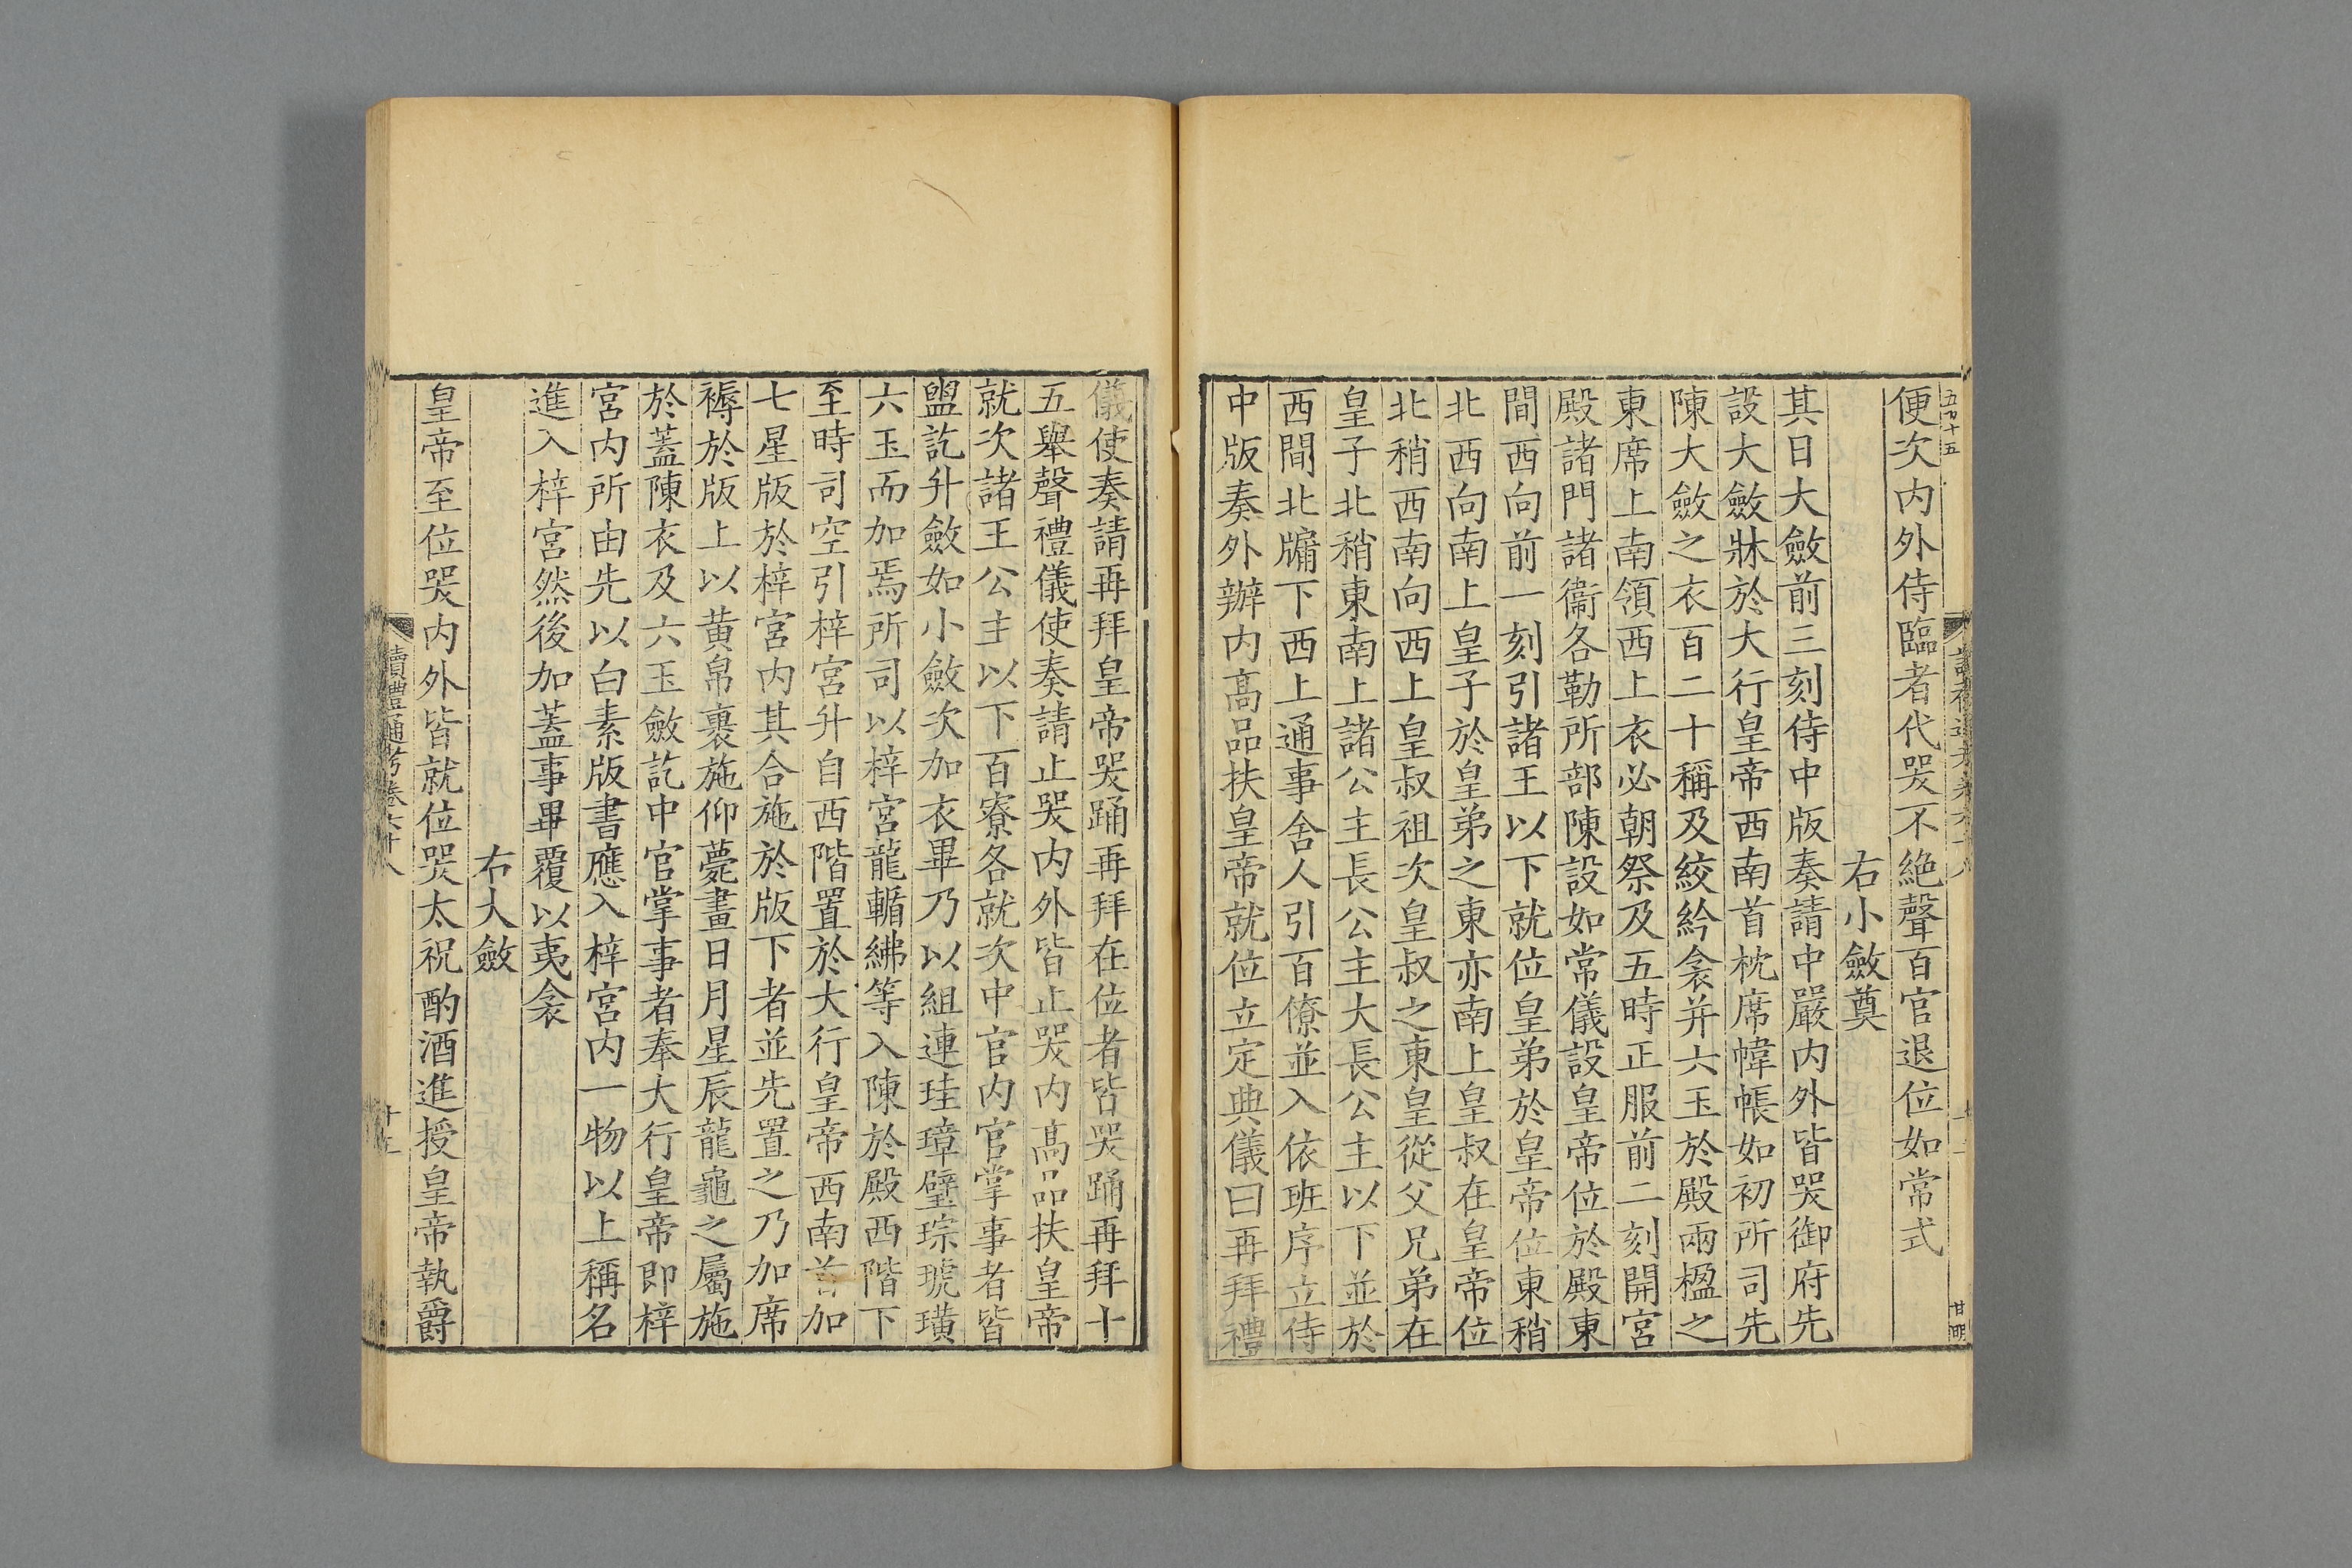 便次内外侍臨者代哭不絶聲百官退位如常式
右小斂奠
其日大斂前三刻侍中版奏請中嚴内外皆哭御府先
設大斂牀於大行皇帝西南首枕席幃帳如初所司先
陳大斂之衣百二十稱及絞紟衾并六玉於殿兩楹之
東席上南領西上衣必朝祭及五時正服前二刻開宮
殿諸門諸衞各勒所部陳設如常儀設皇帝位於殿東
間西向前一刻引諸王以下就位皇弟於皇帝位東稍
北西向南上皇子於皇弟之東亦南上皇叔在皇帝位
北稍西南向西上皇叔祖次皇叔之東皇從父兄弟在
皇子北稍東南上諸公主長公主大長公主以下並於
西間北牗下西上通事舍人引百僚並入依班序立侍
中版奏外辦内高品扶皇帝就位立定典儀曰再拜禮
儀使奏請再拜皇帝哭踊再拜在位者皆哭踊再拜十
五舉聲禮儀使奏請止哭内外皆止哭内高品扶皇帝
就次諸王公主以下百寮各就次中官内官掌事者皆
盥訖升斂如小斂次加衣畢乃以組連珪璋璧琮琥璜
六玉而加焉所司以梓宮龍輴紼等入陳於殿西階下
至時司空引梓宮升自西階置於大行皇帝西南首加
七星版於梓宮内其合施於版下者並先置之乃加席
褥於版上以黃帛裹施仰薨畫日月星辰龍龜之屬施
於蓋陳衣及六玉斂訖中官掌事者奉大行皇帝即梓
宮内所由先以白素版書應入梓宮内一物以上稱名
進入梓宮然後加蓋事畢覆以夷衾
右大斂
皇帝至位哭内外皆就位哭太祝酌酒進授皇帝執爵
讀禮通考卷六十八